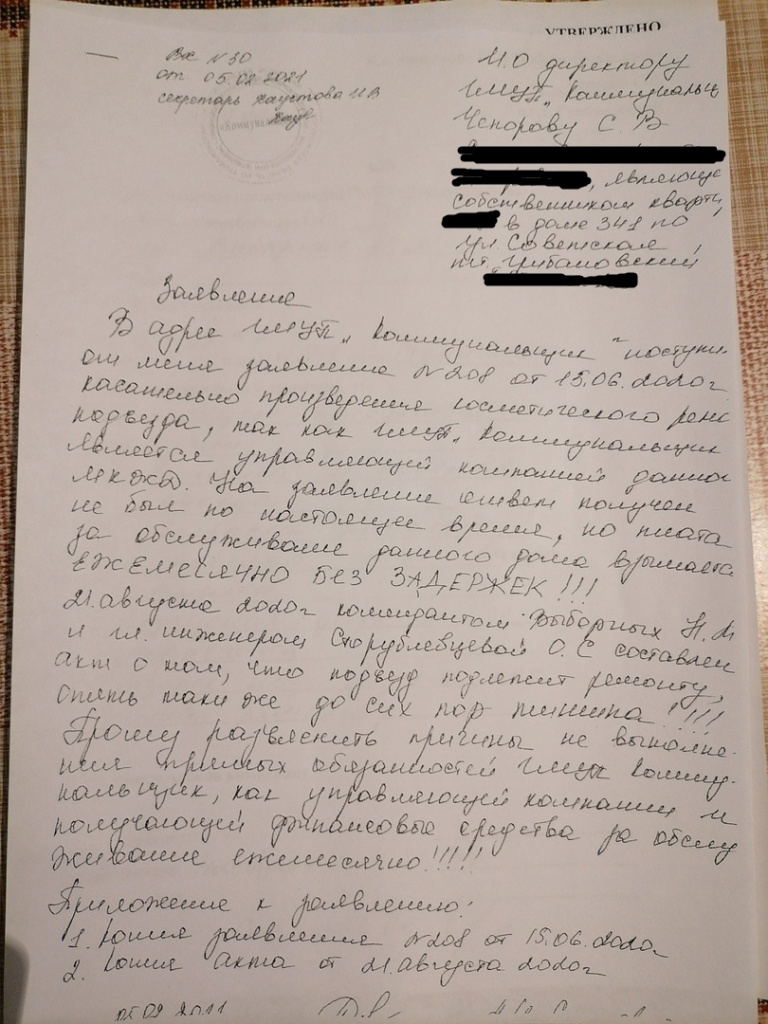 УТВЕРЖДЕНО
Вх N 30
от 05.02.2021
секретарь Хаустова И В
И.О директору
ГМУП „Коммунальщ
Чепорову С. В
, являюще
собственником кварти
в доме 341 по
ул. Советская,
пгт. Грибановский,
Заявление
В адрес ГМУП „Коммунальщик" поступи
от меня заявление N208 от 15.06.2020г
касательно произведения косметического рем
подъезда, так как ГМУП „Коммунальщик
является управляющей компанией данно
МКЖД. На заявление ответ получен
не был по настоящее время, но плата
за обслуживание данного дома взымаетс
ЕЖЕМЕСЯЧНО БЕЗ ЗАДЕРЖЕК!!!
21.августа 2020г комендантом Выборных Н.М
и гл. инженером Сторублевцевой О.С составлен
акт о том, что подъезд подлежит ремонту,
опять таки же до сих пор тишина!!!!!
Прошу разъяснить причины не выполне-
ния прямых обязанностей ГМУП Комму-
нальщик, как управляющей компании и
получающей финансовые средства за обслу
живание ежемесячно!!!!!
Приложение к заявлению:
1. Копия заявления N208 от 15.06.2020г
2. Копия акта от 21.августа 2020г